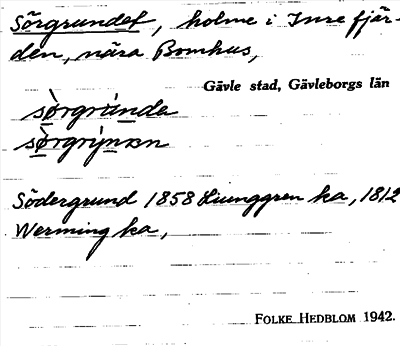 Sörgrundet, holme i Inre fjär-
den, nära Bomhus,
Gävle stad, Gävleborgs län
sò̱rgrùnda
Södergrund 1858 Ljunggren ka, 1812
Werming ka,
FOLKE HEDBLOM 1942.